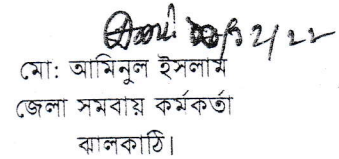 মো: আমিনুল ইসলাম
জেলা সমবায় কর্মকর্তা
ঝালকাঠি।